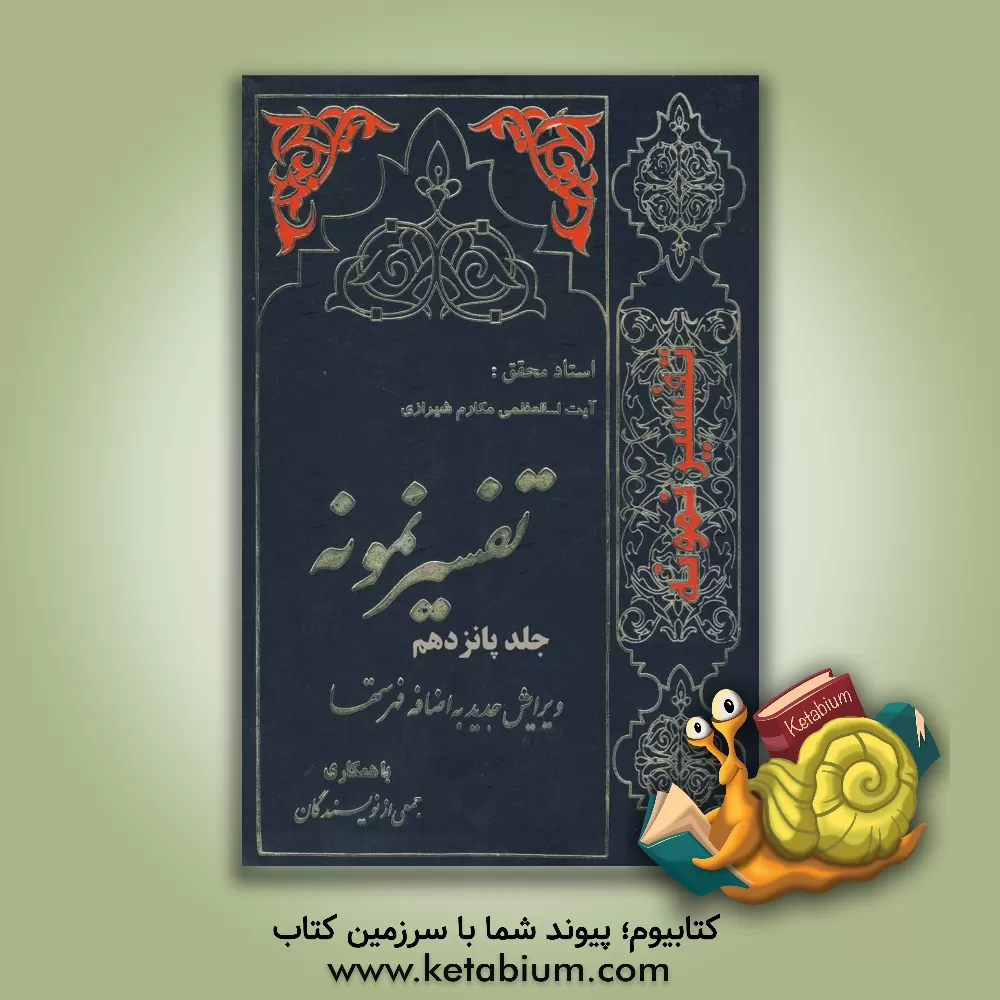 استاد محقق :
آیت الله العظمی مکارم شیرازی
تفسیر نمونه
جلد پانزدهم
ویرایش جدید به اضافه فهرستها
با همکاری
جمعی از نویسندگان
تفسیر نمونه
Ketabium
کتابیوم؛ پیوند شما با سرزمین کتاب
www.ketabium.com